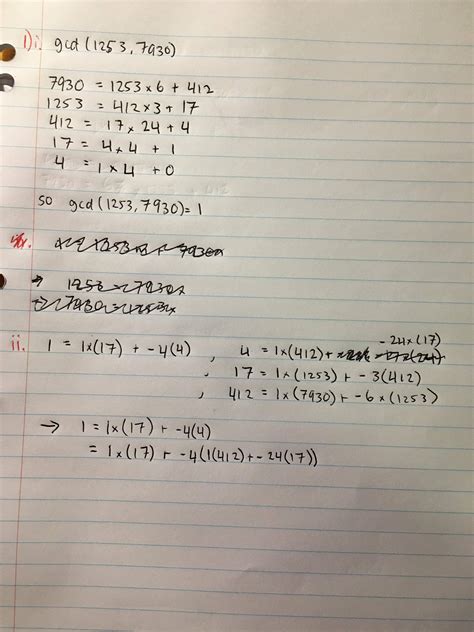 1) i. gcd (1253, 7930)
7930 = 1253 × 6 + 412
1253 = 412 × 3 + 17
412 = 17 × 24 + 4
17 = 4 × 4 + 1
4 = 1 × 4 + 0
so gcd (1253, 7930) = 1
ii. 1 = 1×(17) + -4(4) , 4 = 1×(412) + -24×(17)
, 17 = 1×(1253) + -3(412)
, 412 = 1×(7930) + -6×(1253)
→ 1 = 1×(17) + -4(4)
= 1×(17) + -4(1(412) + -24(17))